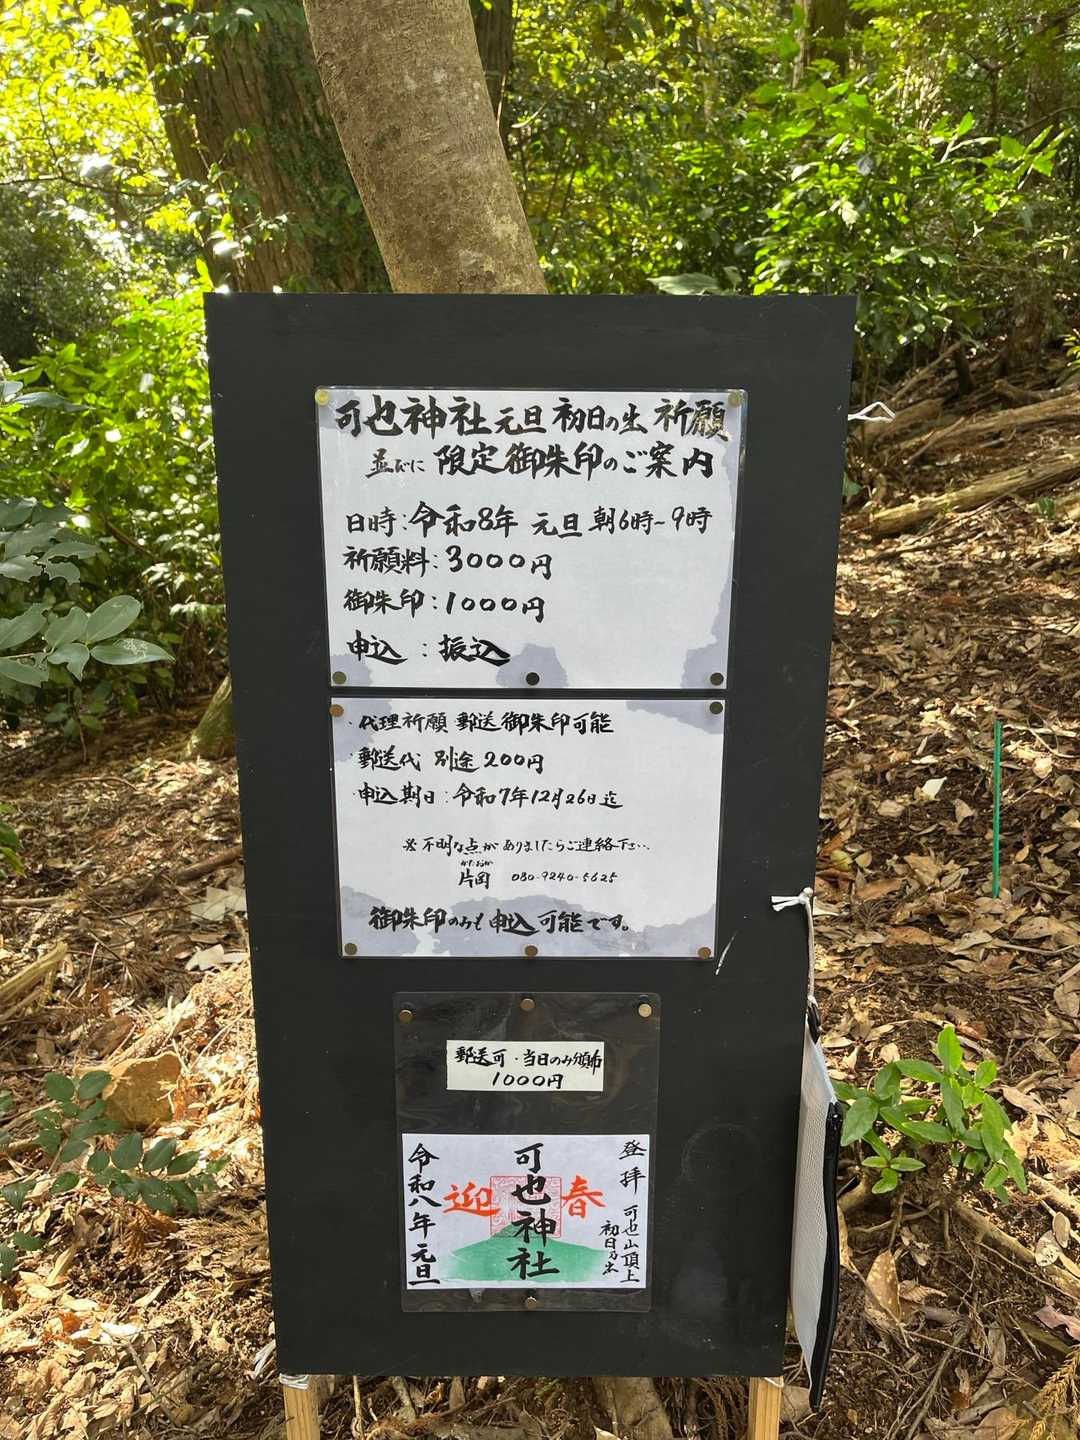 可也神社元旦初日の出祈願
並びに限定御朱印のご案内
日時:令和8年 元旦 朝6時~9時
祈願料:3000円
御朱印:1000円
申込 :振込
・代理祈願 郵送御朱印可能
・郵送代 別途200円
・申込期日:令和7年12月26日迄
※不明な点がありましたらご連絡下さい。
かたおか
片岡 080-9240-5625
御朱印のみも申込可能です。
郵送可・当日のみ頒布
1000円
登拝 可也山頂上
初日乃出
迎春
可也神社
令和八年元旦